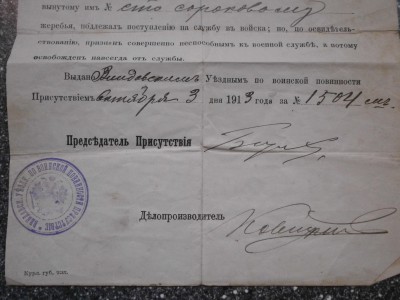 вынутому имъ № сто сороковому
жеребья, подлежалъ поступленію на службу въ войска; но, по освидѣтель-
ствованію, признанъ совершенно неспособнымъ къ военной службѣ, а потому
освобожденъ навсегда отъ службы.
Выдано Виндавскимъ Уѣзднымъ по воинской повинности
Присутствіемъ октября 3 дня 1913 года за № 1504
Предсѣдатель Присутствія
Дѣлопроизводитель
Курл. губ. тип.